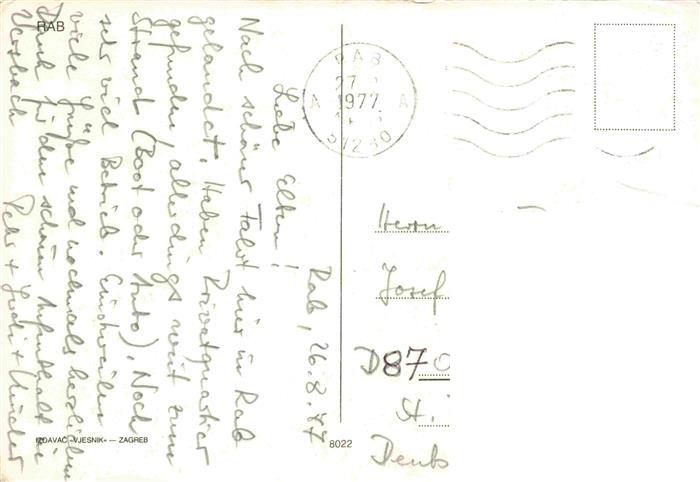 RAB
Rab, 26.8.77
Liebe Eltern!
Nach schöner Fahrt hier in Rab
gelandet. Haben Privatquartier
gefunden, allerdings weit zum
Strand (Boot oder Auto). Noch
sehr viel Betrieb. Einstweilen
viele Grüße und nochmals herzlichen
Dank für den schönen Aufenthalt in
Versbach
IZDAVAČ »VJESNIK« — ZAGREB
8022
RAB
27
A 1977 A
51280
Herrn
Josef
D870
St.
Deuts